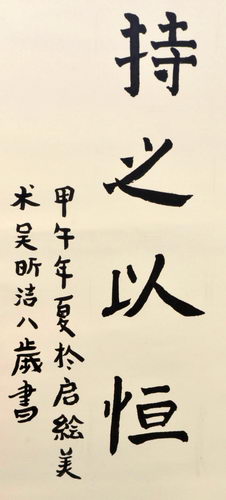 持之以恒
甲午年夏於启绘美
术吴昕洁八歲書